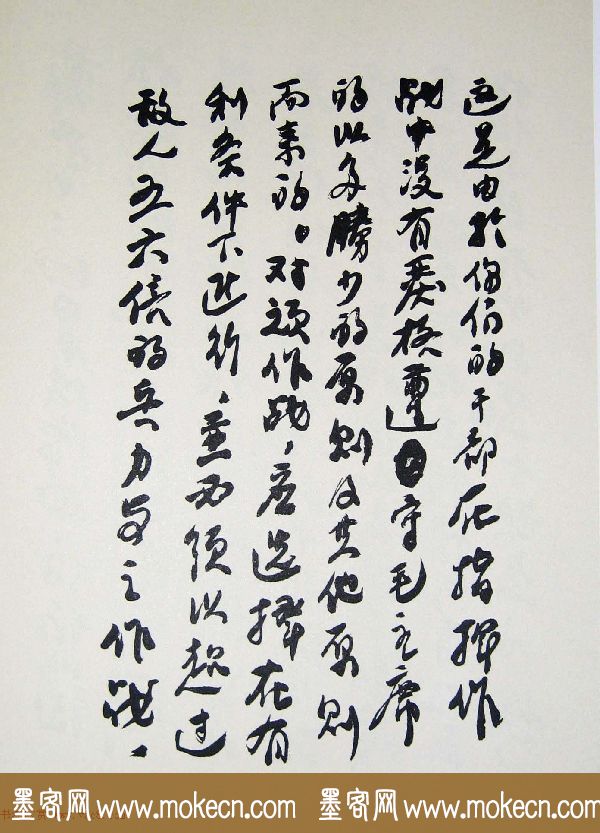 这是由於们的干部在指挥作
战中没有严格遵守毛主席
的以多勝少的原则及其他原则
而来的。对顽作战，应选择在有
利条件下进行，并必须以超过
敌人五六倍的兵力与之作战，
墨客网 www.mokecn.com 墨客网 www.mokecn.com